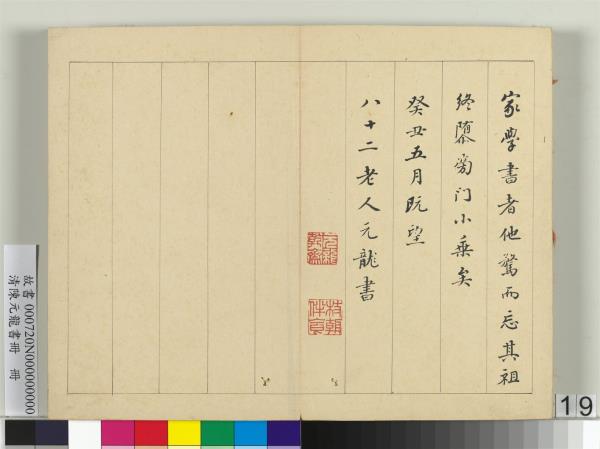 家學書者他驁而忘其祖
終墮旁门小乗矣
癸丑五月既望
八十二老人元龍書
故書 000720N000000000
清陳元龍書冊 冊
19